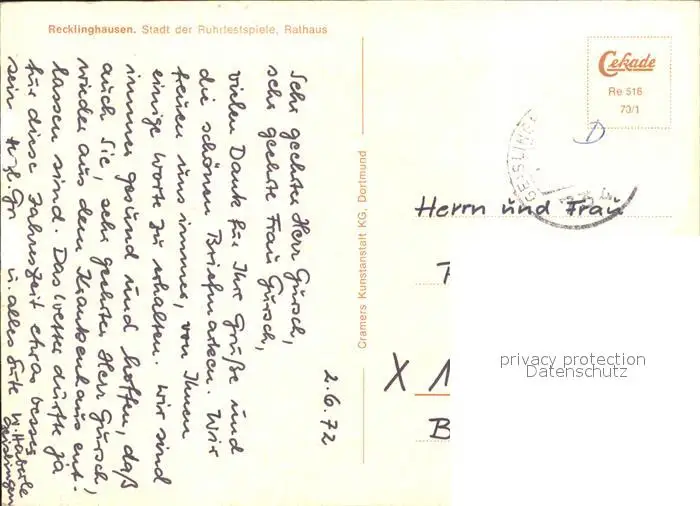 Recklinghausen. Stadt der Ruhrfestspiele, Rathaus
2.6.72
Sehr geehrter Herr Gursch,
sehr geehrte Frau Gursch,
vielen Dank für Ihre Grüße und
die schönen Briefmarken. Wir
freuen uns immer, von Ihnen
einige Worte zu erhalten. Wir sind
immer gesund und hoffen, daß
auch Sie, sehr geehrter Herr Gursch,
wieder aus dem Krankenhaus ent-
lassen sind. Das Wetter dürfte ja
für diese Jahreszeit etwas besser
sein. Hzl. Gr. u. alles Gute W. Häberle
Geislingen
Cramers Kunstanstalt KG, Dortmund
Cekade
Re 516
73/1
D
GEISLINGEN
Herrn und Frau
X 1
B
privacy protection
Datenschutz